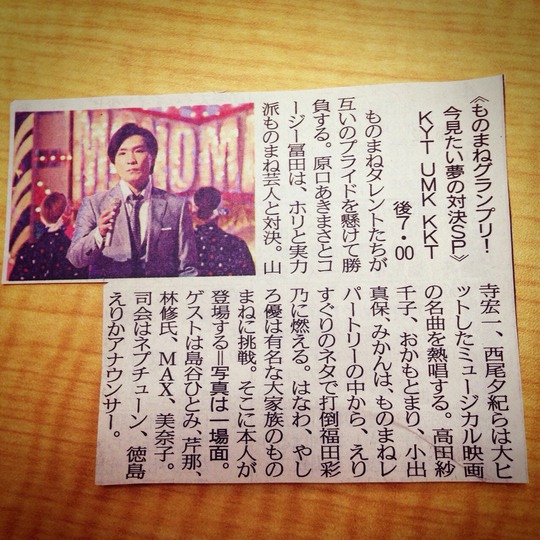 《ものまねグランプリ!
今見たい夢の対決SP》
KYT UMK KKT
後7・00
ものまねタレントたちが
互いのプライドを懸けて勝
負する。原口あきまさとコ
ージー冨田は、ホリと実力
派ものまね芸人と対決。山
寺宏一、西尾夕紀らは大ヒ
ットしたミュージカル映画
の名曲を熱唱する。高田紗
千子、おかもとまり、小出
真保、みかんは、ものまねレ
パートリーの中から、えり
すぐりのネタで打倒福田彩
乃に燃える。はなわ、やし
ろ優は有名な大家族のもの
まねに挑戦。そこに本人が
登場する=写真は一場面。
ゲストは島谷ひとみ、芹那、
林修氏、MAX、美奈子。
司会はネプチューン、徳島
えりかアナウンサー。